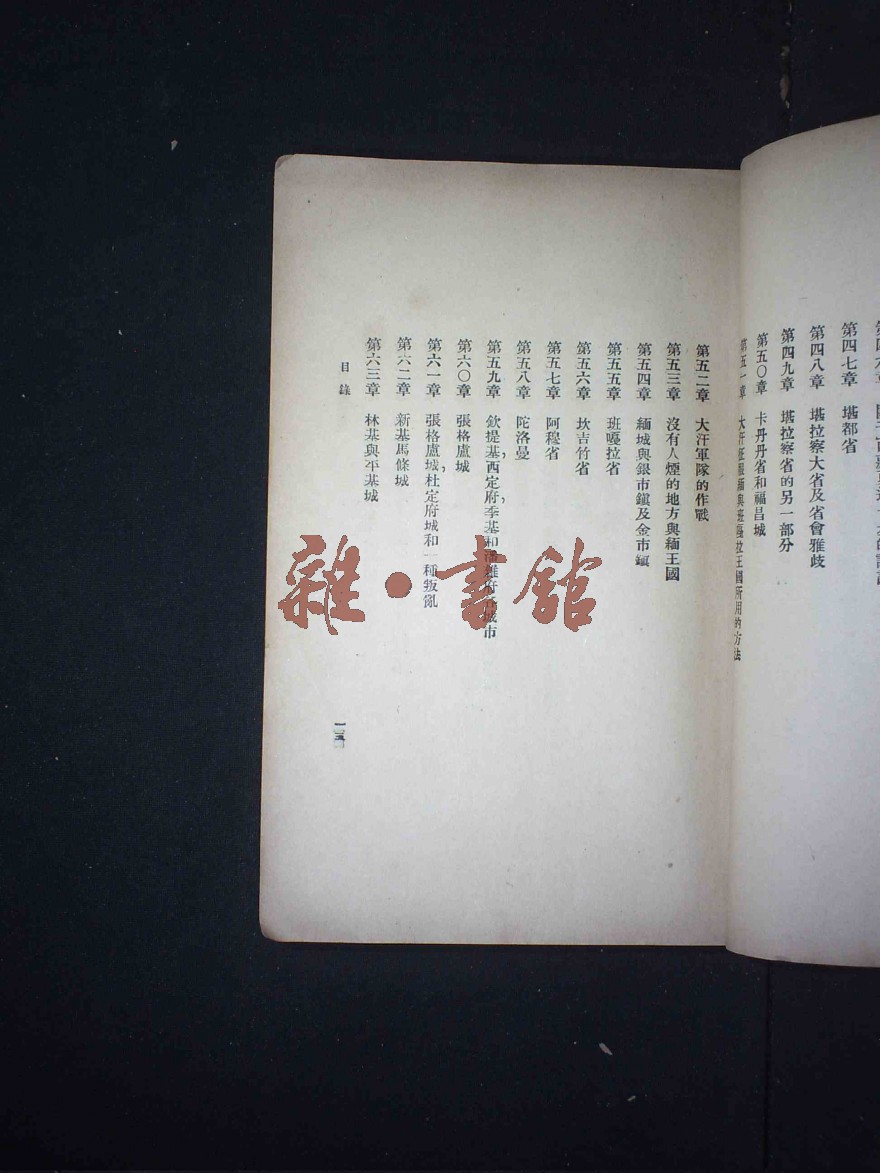 第四七章 堪都省
第四八章 堪拉察大省及省會雅歧
第四九章 堪拉察省的另一部分
第五〇章 卡丹丹省和福昌城
第五一章 大汗征服緬與班嘎拉王國所用的方法
第五二章 大汗軍隊的作戰
第五三章 沒有人煙的地方與緬王國
第五四章 緬城與銀市鎭及金市鎭
第五五章 班嘎拉省
第五六章 坎吉竹省
第五七章 阿穆省
第五八章 陀洛曼
第五九章 欽提基西定府，季基和潘雖府各城市
第六〇章 張格盧城
第六一章 張格盧城，杜定府城和一種叛亂
第六二章 新基馬條城
第六三章 林基與平基城
目錄
雜·書館